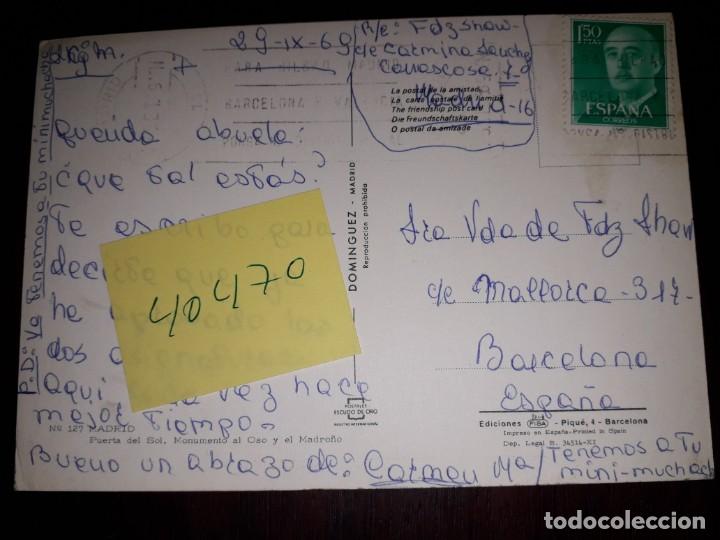 29-IX-69
R/e: Fdz Shaw
c/e Carmina Sanchez
Carrascosa, 7-º
La postal de la amistad
La carte postale de l'amitié
The friendship post card
Die freundschaftskarte
O postal da amizade
1'50
PTAS
ESPAÑA
CORREOS
BARCELONA
Querida abuela:
¿que tal estás?
Te escribo para
decirte que
he
dos
aqui vez hace
mejor tiempo-
40470
Nº 127 MADRID
Puerta del Sol. Monumento al Oso y el Madroño
Bueno un abrazo de: Carmen Mª/Tenemos a Tu
mini-muchach
P.D: Ya Tenemos a Tu mini muchacha
DOMINGUEZ - MADRID
Reproducción prohibida
POSTALES
ESCUDO DE ORO
Sra Vda de Fdz Shaw
c/e Mallorca-317-
Barcelona
España
Ediciones FISA - Piqué, 4 - Barcelona
Impreso en España-Printed in Spain
Dep. Legal B. 34514-XI
todocoleccion